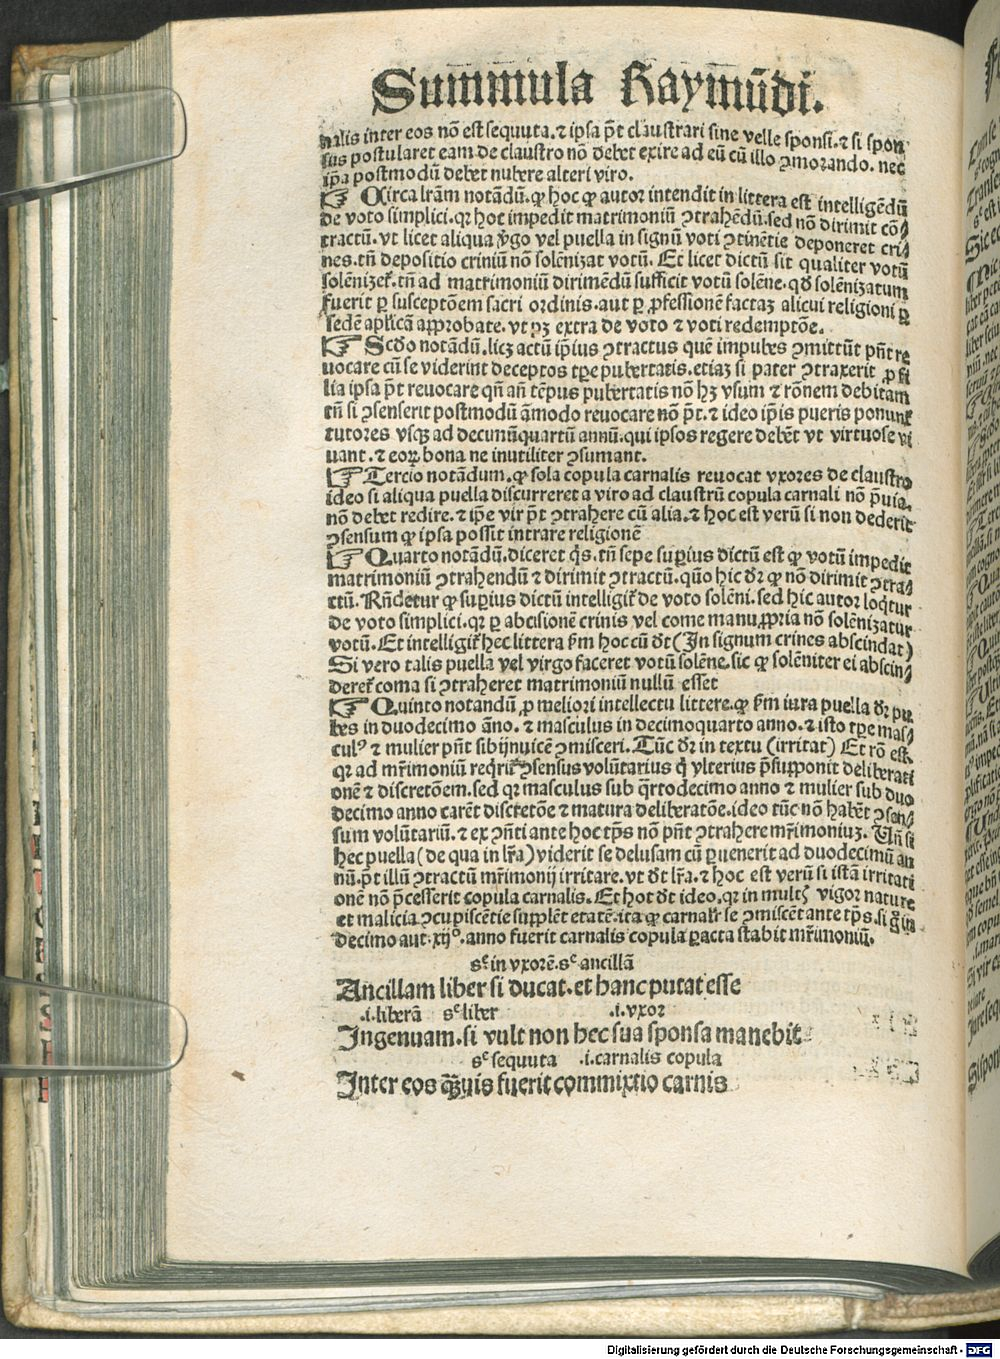 Sum̄mula Raymūdi.
nalis inter eos nō est sequuta. ⁊ ipsa p̄t claustrari sine velle sponsi. ⁊ si spon
sus postularet eam de claustro nō debet exire ad eū cū illo ꝯmorando. nec
ip̄a postmodū debet nubere alteri viro.
☞ Circa lr̄am notādū. ꝙ hoc ꝙ autor intendit in littera est intelligēdū
de voto simplici. qꝛ hoc impedit matrimoniū ꝯtrahēdū. sed nō dirimit cō⸗
tractū. vt licet aliqua v̓go vel puella in signū voti ꝯtinētie deponeret cri⸗
nes. tn̄ depositio criniū nō solēnizat votū. Et licet dictū sit qualiter votū
solēnizet᷑. tn̄ ad matrimoniū dirimēdū sufficit votū solēne. qd̓ solēnizatum
fuerit ꝑ susceptōem sacri ordinis. aut ꝑ ꝓfessionē factaꝫ alicui religioni ꝑ
sedē aplicā approbate. vt pꝫ extra de voto ⁊ voti redemptōe.
☞ Scd̓o notādū. licꝫ actū ip̄ius ꝯtractus quē impubes ꝯmittūt pn̄t re
uocare cū se viderint deceptos tp̄e pubertatis. etiaꝫ si pater ꝯtraxerit ꝓ fi
lia ipsa p̄t reuocare qn̄ an̄ tēpus pubertatis nō hꝫ vsum ⁊ rōnem debitam
tn̄ si ꝯsenserit postmodū am̄odo reuocare nō p̄t. ⁊ ideo ip̄is pueris ponunt᷑
tutores vsqꝫ ad decimūquartū annū. qui ipsos regere debēt vt virtuose vi
uant. ⁊ eoꝝ bona ne inutiliter ꝯsumant.
☞ Tercio notādum. ꝙ sola copula carnalis reuocat vxores de claustro
ideo si aliqua puella discurreret a viro ad claustrū copula carnali nō p̄uia.
nō debet redire. ⁊ ip̄e vir p̄t ꝯtrahere cū alia. ⁊ hoc est verū si non dederit
ꝯsensum ꝙ ipsa possit intrare religionē
☞ Quarto notādū. diceret qs̓. tn̄ sepe suꝑius dictū est ꝙ votū impedit
matrimoniū ꝯtrahendū ⁊ dirimit ꝯtractū. quō hic dr̄ ꝙ nō dirimit ꝯtra⸗
ctū. Rn̄detur ꝙ suꝑius dictū intelligit᷑ de voto solēni. sed hic autor loq̄tur
de voto simplici. qꝛ ꝑ abcisionē crinis vel come manu ꝓpria nō solēnizatur
votū. Et intelligit᷑ hec littera ẜm hoc cū dt̄ (In signum crines abscindat)
Si vero talis puella vel virgo faceret votū solēne. sic ꝙ solēniter ei abscin⸗
deret᷑ coma si ꝯtraheret matrimoniū nullū esset
☞ Quinto notandū ꝓ meliori intellectu littere. ꝙ ẜm iura puella dr̄ pu
bes in duodecimo āno. ⁊ masculus in decimoquarto anno. ⁊ isto tp̄e mas⸗
culꝰ ⁊ mulier pn̄t sibijnuicē ꝯmisceri. Tūc dr̄ in textu (irritat) Et rō est.
qꝛ ad mr̄imoniū reqrit᷑ ꝯsensus volūtarius q̄ vlterius p̄supponit deliberati
onē ⁊ discretōem. sed qꝛ masculus sub qrtodecimo anno ⁊ mulier sub duo
decimo anno carēt discretōe ⁊ matura deliberatōe. ideo tūc nō habēt ꝯsen⸗
sum volūtariū. ⁊ ex ꝯn̄ti ante hoc tp̄s nō pn̄t ꝯtrahere mr̄imoniuꝫ. Un̄ si
hec puella (de qua in lr̄a) viderit se delusam cū ꝑuenerit ad duodecimū an
nū. p̄t illū ꝯtractū mr̄imonij irritare. vt dt̄ lr̄a. ⁊ hoc est verū si istā irritati
onē nō p̄cesserit copula carnalis. Et hoc dt̄ ideo. qꝛ in multꝭ vigor nature
et malicia ꝯcupiscētie supplēt etatē. ita ꝙ carnalr̄ se ꝯmiscēt ante tp̄s. si
decimo aut .xijᵒ. anno fuerit carnalis copula ꝑacta stabit mr̄imoniū.
sᶜ. in vxorē. sᶜ. ancillā
Ancillam liber si ducat. et hanc putat esse
.i. liberā sᶜ liber .i. vxor
Ingenuam. si vult non hec sua sponsa manebit
sᶜ sequuta .i. carnalis copula
Inter eos q̄ꝫuis fuerit commixtio carnis
Digitalisierung gefördert durch die Deutsche Forschungsgemeinschaft - DFG